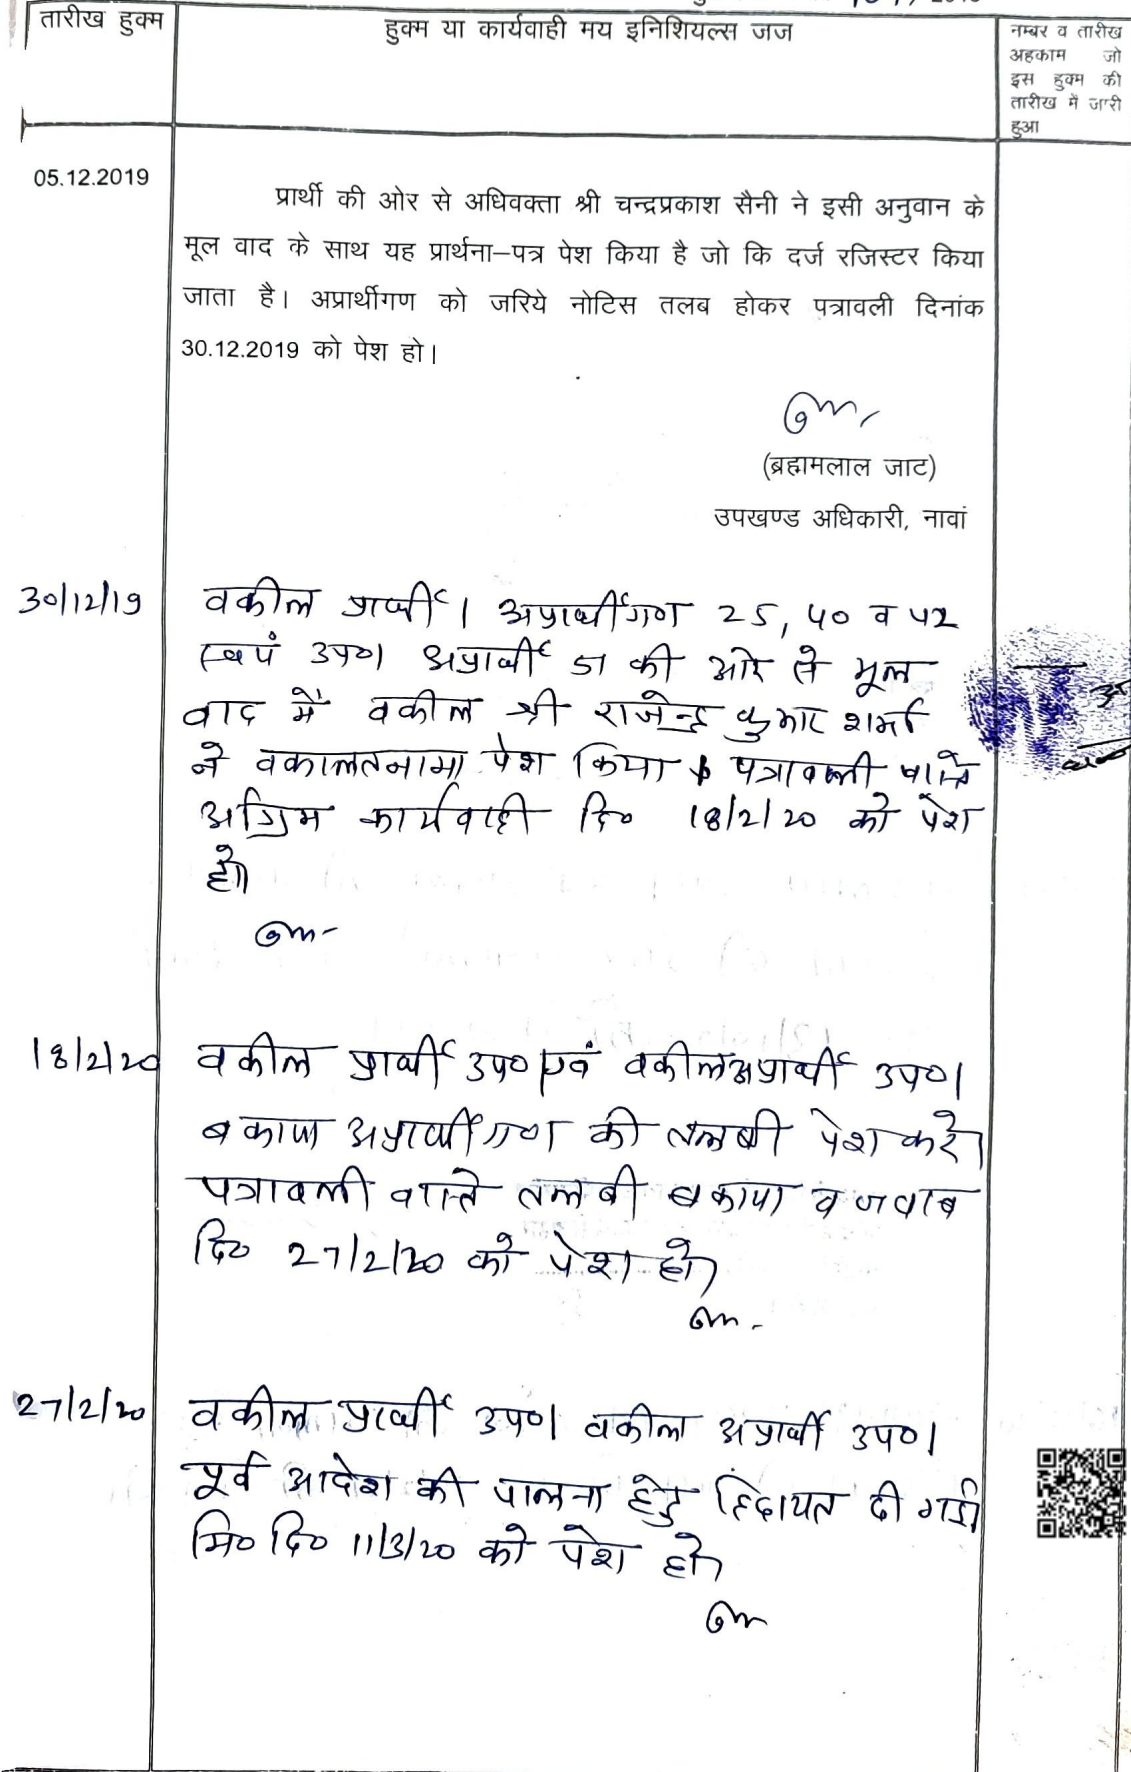 तारीख हुक्म
हुक्म या कार्यवाही मय इनिशियल्स जज
नम्बर व तारीख
अहकाम जो
इस हुक्म की
तारीख में जारी
हुआ
05.12.2019
प्रार्थी की ओर से अधिवक्ता श्री चन्द्रप्रकाश सैनी ने इसी अनुवान के
मूल वाद के साथ यह प्रार्थना–पत्र पेश किया है जो कि दर्ज रजिस्टर किया
जाता है। अप्रार्थीगण को जरिये नोटिस तलब होकर पत्रावली दिनांक
30.12.2019 को पेश हो।
(ब्रह्मामलाल जाट)
उपखण्ड अधिकारी, नावां
30/12/19
वकील प्रार्थी। अप्रार्थीगण 25, 40 व 42
स्वयं उप०। अप्रार्थी 51 की ओर से मूल
वाद में वकील श्री राजेन्द्र कुमार शर्मा
ने वकालतनामा पेश किया। पत्रावली वास्ते
अग्रिम कार्यवाही दि० 18/2/20 को पेश
हो।
18/2/20
वकील प्रार्थी उप० एवं वकील अप्रार्थी उप०।
बकाया अप्रार्थीगण की तलबी पेश करे।
पत्रावली वास्ते तलबी बकाया व जवाब
दि० 27/2/20 को पेश हो।
27/2/20
वकील प्रार्थी उप०। वकील अप्रार्थी उप०।
पूर्व आदेश की पालना हेतु हिदायत दी गई।
मि० दि० 11/3/20 को पेश हो।